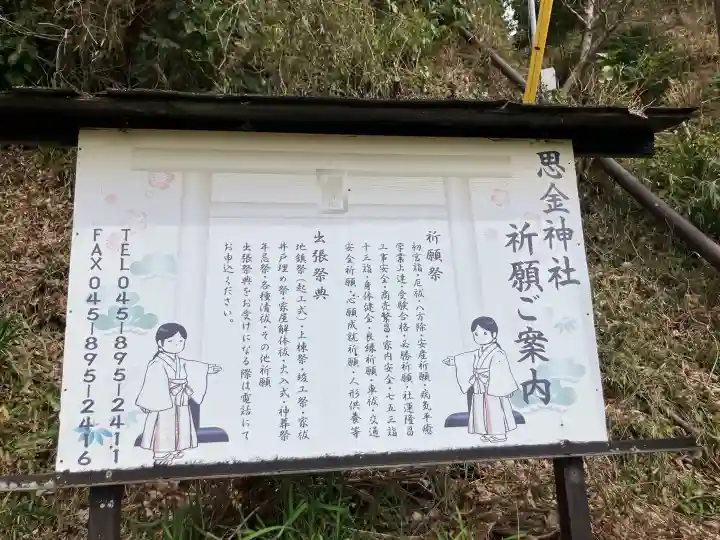 思金神社
祈願ご案内
祈願祭
初宮詣・厄祓・八方除・安産祈願・病気平癒
学業上達・受験合格・必勝祈願・社運隆昌
工事安全・商売繁昌・家内安全・七五三詣
十三詣・身体健全・良縁祈願・車祓・交通
安全祈願・心願成就祈願・人形供養等
出張祭典
地鎮祭（起工式）・上棟祭・竣工祭・家祓
井戸埋め祭・家屋解体祓・火入式・神葬祭
年忌祭・各種清祓・その他祈願
出張祭典をお受けになる際は電話にて
お申込ください。
TEL 045-895-2411
FAX 045-895-2416